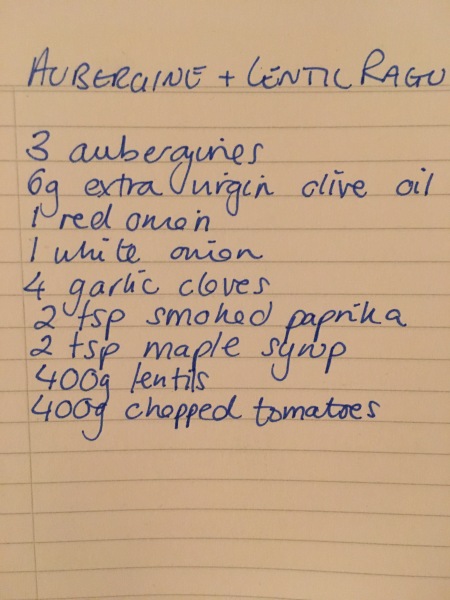 AUBERGINE + LENTIL RAGU
3 aubergines
6g extra virgin olive oil
1 red onion
1 white onion
4 garlic cloves
2 tsp smoked paprika
2 tsp maple syrup
400g lentils
400g chopped tomatoes